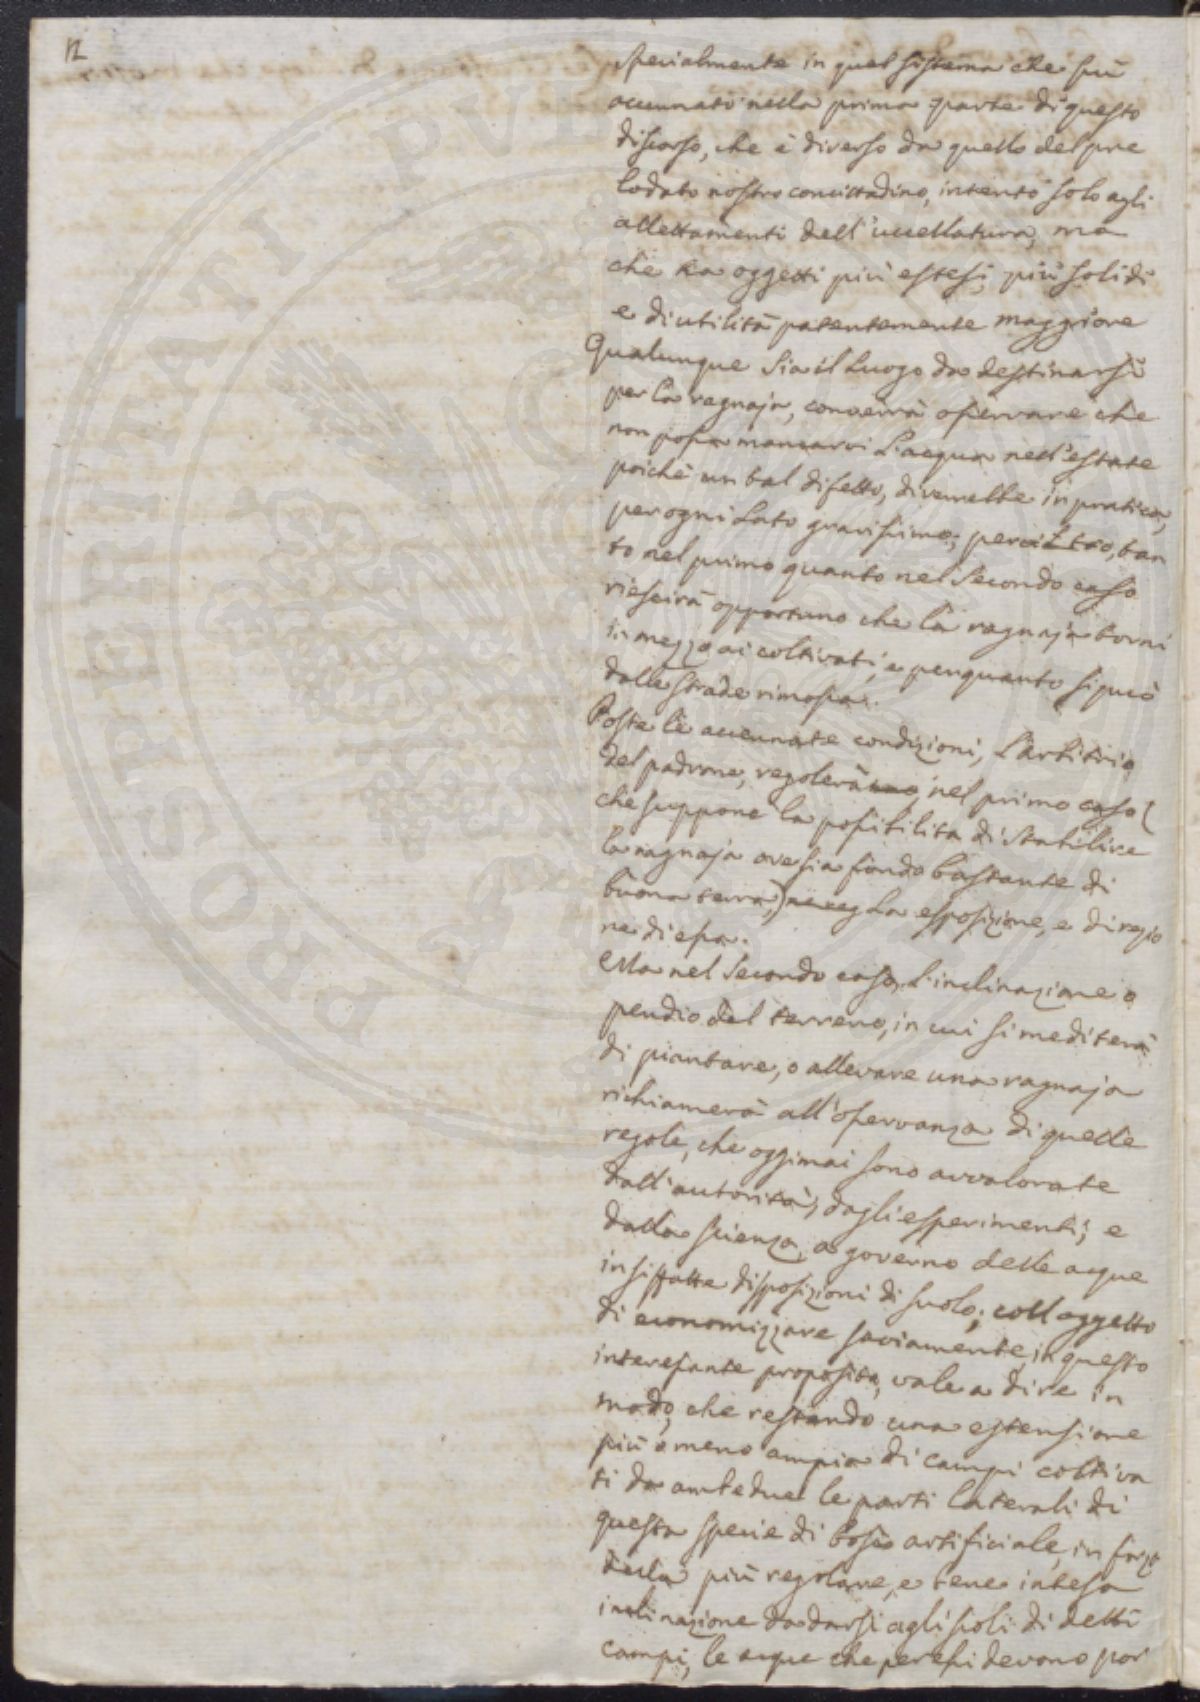 12
specialmente in quel sistema che fu
accennato nella prima parte di questo
discorso, che è diverso da quello del pre
lodato nostro concittadino, intento solo agli
allettamenti dell'uccellatura, ma
che ha oggetti più estesi, più solidi
e di utilità patentemente maggiore
Qualunque sia il luogo da destinarsi
per la ragnaja, converrà osservare che
non possa mancarvi l'acqua nell'estate
poichè un tal difetto, diverrebbe in pratica,
per ogni lato gravissimo; perciò, tan
to nel primo quanto nel secondo caso
riescirà opportuno che la ragnaja torni
in mezzo ai coltivati, e per quanto si può
dalle strade rimossa.
Poste le accennate condizioni, l'arbitrio
del padrone, regolerà nel primo caso (
che suppone la possibilità di stabilire
la ragnaja ove sia fondo bastante di
buona terra,) la esposizione, e direzio
ne di essa.
Ma nel secondo caso, l'inclinazione o
pendio del terreno, in cui si mediterà
di piantare, o allevare una ragnaja
richiamerà all'osservanza di quelle
regole, che oggimai sono avvalorate
dall'autorità, dagli esperimenti, e
dalla scienza, a governo delle acque
in siffatte disposizioni di suolo; coll oggetto
di economizzare saviamente in questo
interessante proposito, vale a dire in
modo, che restando una estensione
più o meno ampia di campi coltiva
ti da ambedue le parti laterali di
questa specie di bosco artificiale, in forza
della più regolare, e bene intesa
inclinazione da darsi agli scoli di detti
campi, le acque che per essi devono por